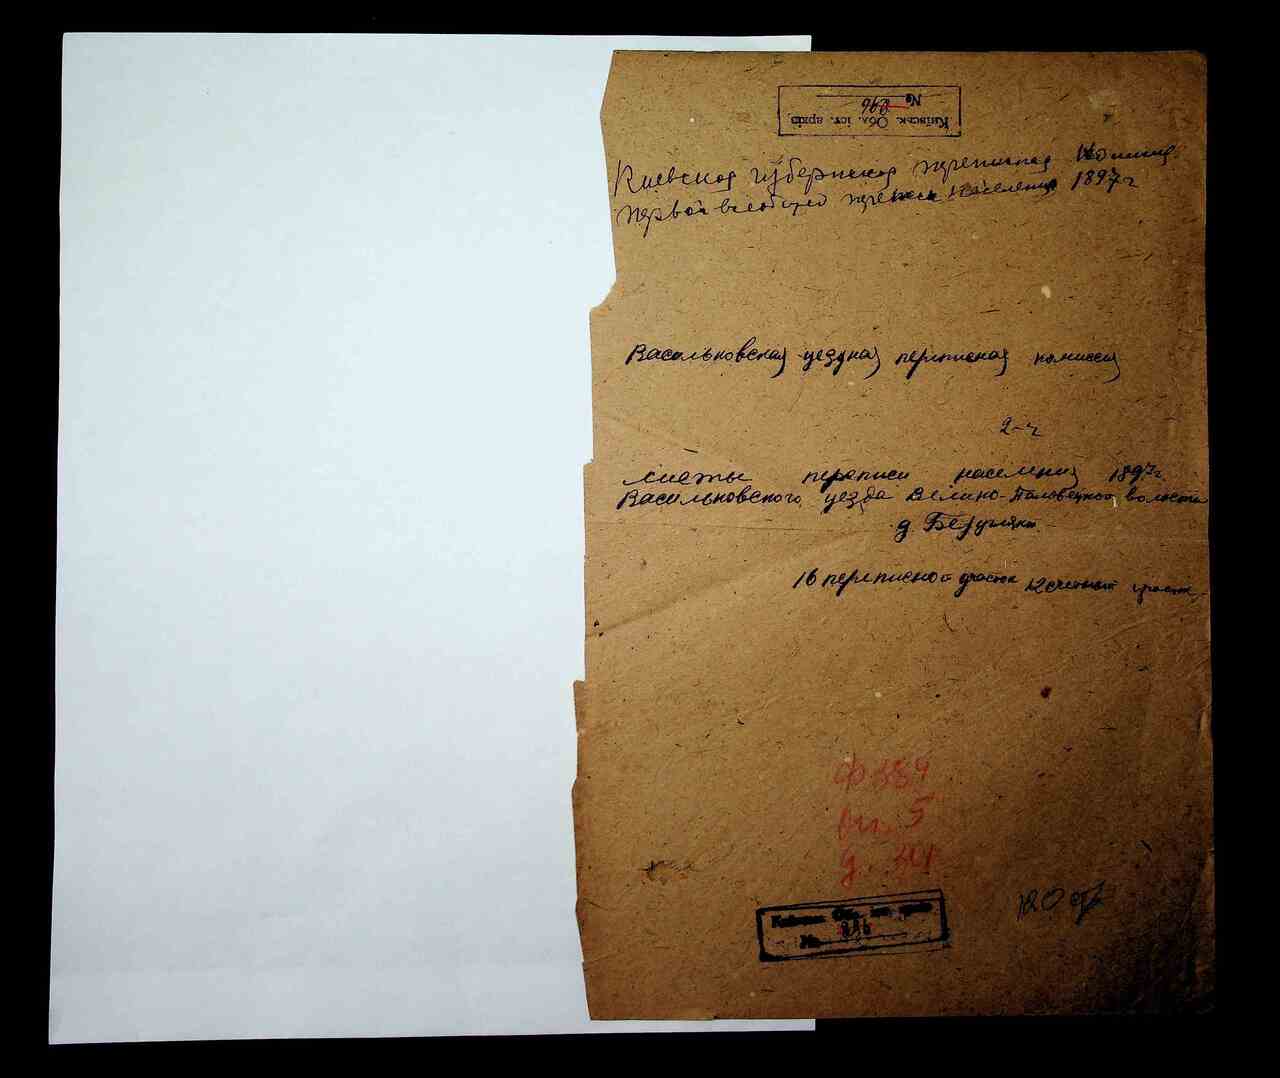 Київськ. Обл. іст. архів
№ 996
Киевская губернская переписная Комиссия
первой всеобщей переписи населения 1897 г
Васильковская уездная переписная комиссия
2-ч
листы переписи населения 1897 г.
Васильковского уезда Велико-Половецкой волости
д. Безугляки
16 переписной участок 12 счетный участок
оп. 5
д. 341
Київськ. Обл. іст. архів
№